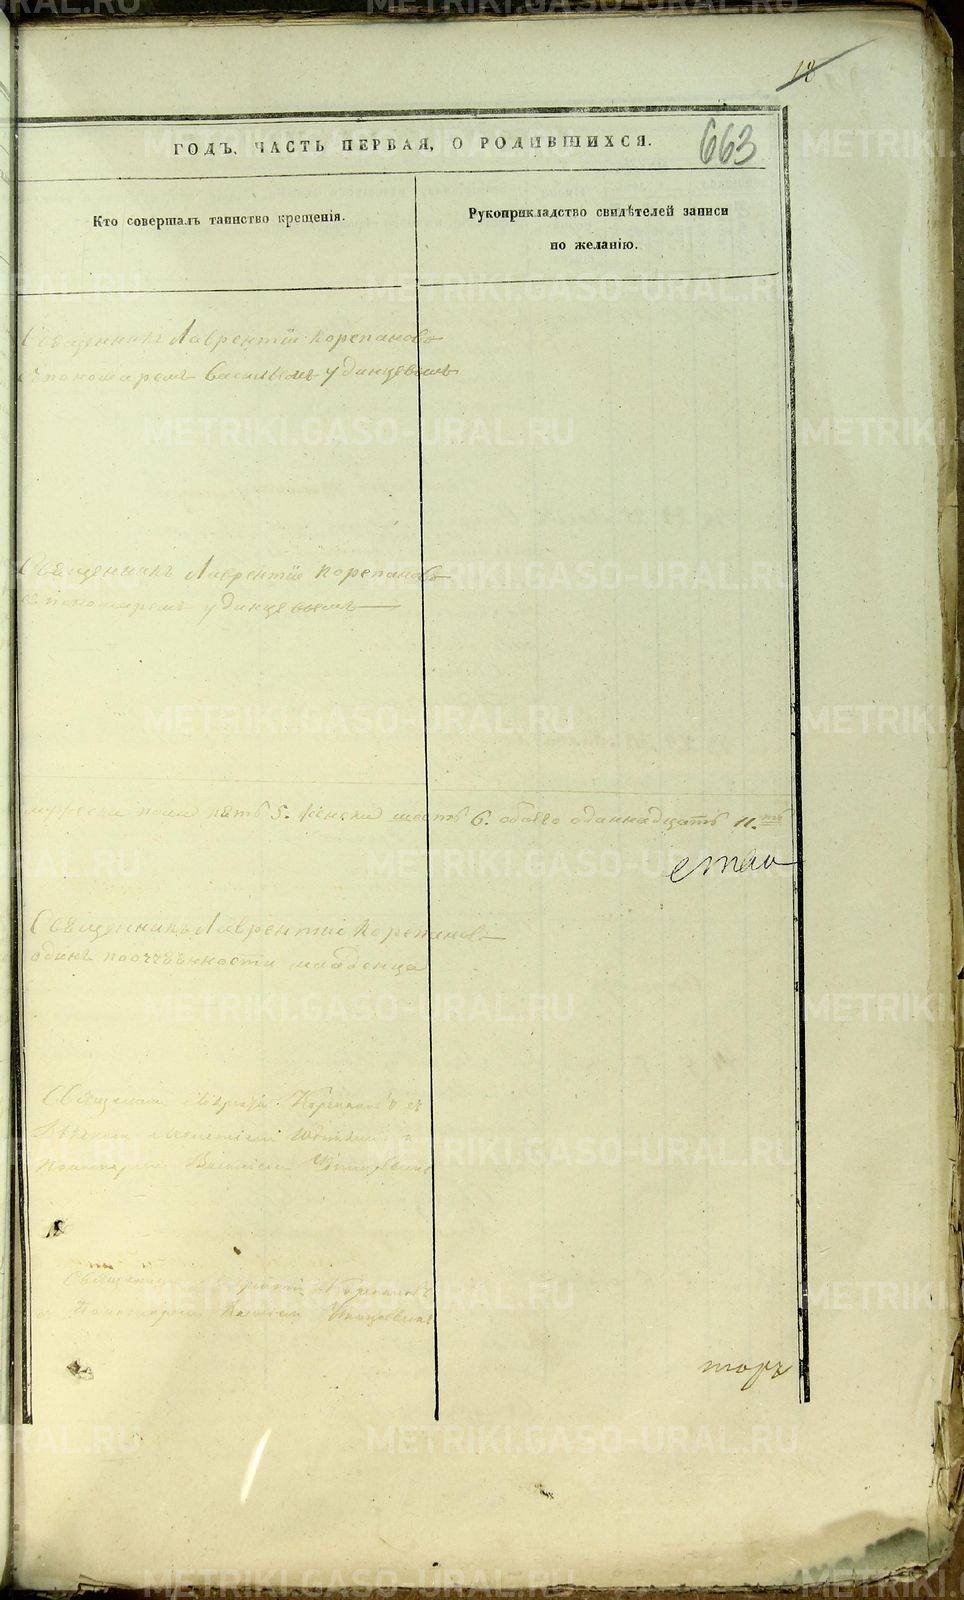 18
ГОДЪ, ЧАСТЬ ПЕРВАЯ, О РОДИВШИХСЯ.
663
Кто совершалъ таинство крещенія.
Рукоприкладство свидѣтелей записи
по желанію.
Священникъ Лаврентій Корепановъ
съ пономаремъ Васильемъ Удинцевымъ
Священникъ Лаврентій Корепановъ
съ пономаремъ Удинцевымъ
пола пять 5. женска шесть 6. обоего одиннадцать 11.ть
Священникъ Лаврентій Корепановъ
одинъ младенца
Священникъ Корепановъ съ
Пономаремъ Василіемъ Удинцевымъ
Священникъ Лаврентій Корепановъ
съ Пономаремъ Василіемъ Удинцевымъ
METRIKI.GASO-URAL.RU